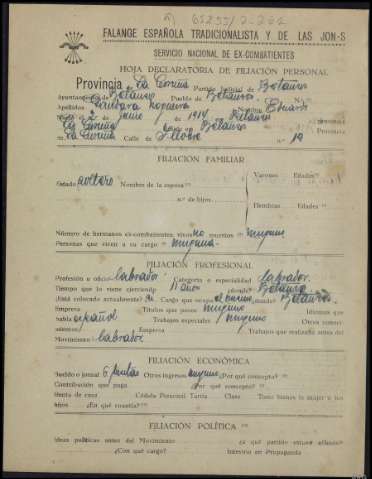 FALANGE ESPAÑOLA TRADICIONALISTA Y DE LAS JON-S
SERVICIO NACIONAL DE EX-COMBATIENTES
HOJA DECLARATORIA DE FILIACIÓN PERSONAL
Provincia La Coruña Partido Judicial de Betanzos
Ayuntamiento de Betanzos Pueblo de Betanzos N.º
Apellidos Nombre
de 1914 Betanzos
La Coruña Betanzos Provincia
La Coruña Calle de n.º 19
FILIACIÓN FAMILIAR
Varones Edades
Estado soltero Nombre de la esposa
n.º de hijos
Hembras Edades
Número de hermanos ex-combatientes vivos no muertos ninguno
Personas que viven a su cargo ninguna
FILIACIÓN PROFESIONAL
Profesión u oficio labrador Categoría o especialidad labrador
Tiempo que lo viene ejerciendo 11 años ¿dónde? Betanzos
¿Está colocado actualmente? Si Cargo que ocupa el mismo ¿dónde? Betanzos
Empresa Títulos que posee ninguno Idiomas que
habla español Trabajos especiales ninguno Otros conoci-
mientos Empresa Trabajos que realizaba antes del
Movimiento labrador
FILIACIÓN ECONÓMICA
Sueldo o jornal 6 pesetas Otros ingresos ninguno ¿Por qué concepto?
Contribución que paga ¿Por qué concepto?
Renta de casa Cédula Personal: Tarifa Clase Tiene bienes la mujer o los
niños ¿En qué cuantía?
FILIACIÓN POLÍTICA
Ideas políticas antes del Movimiento ¿a qué partido estuvo afiliado?
¿Con qué cargo? Intervino en Propaganda